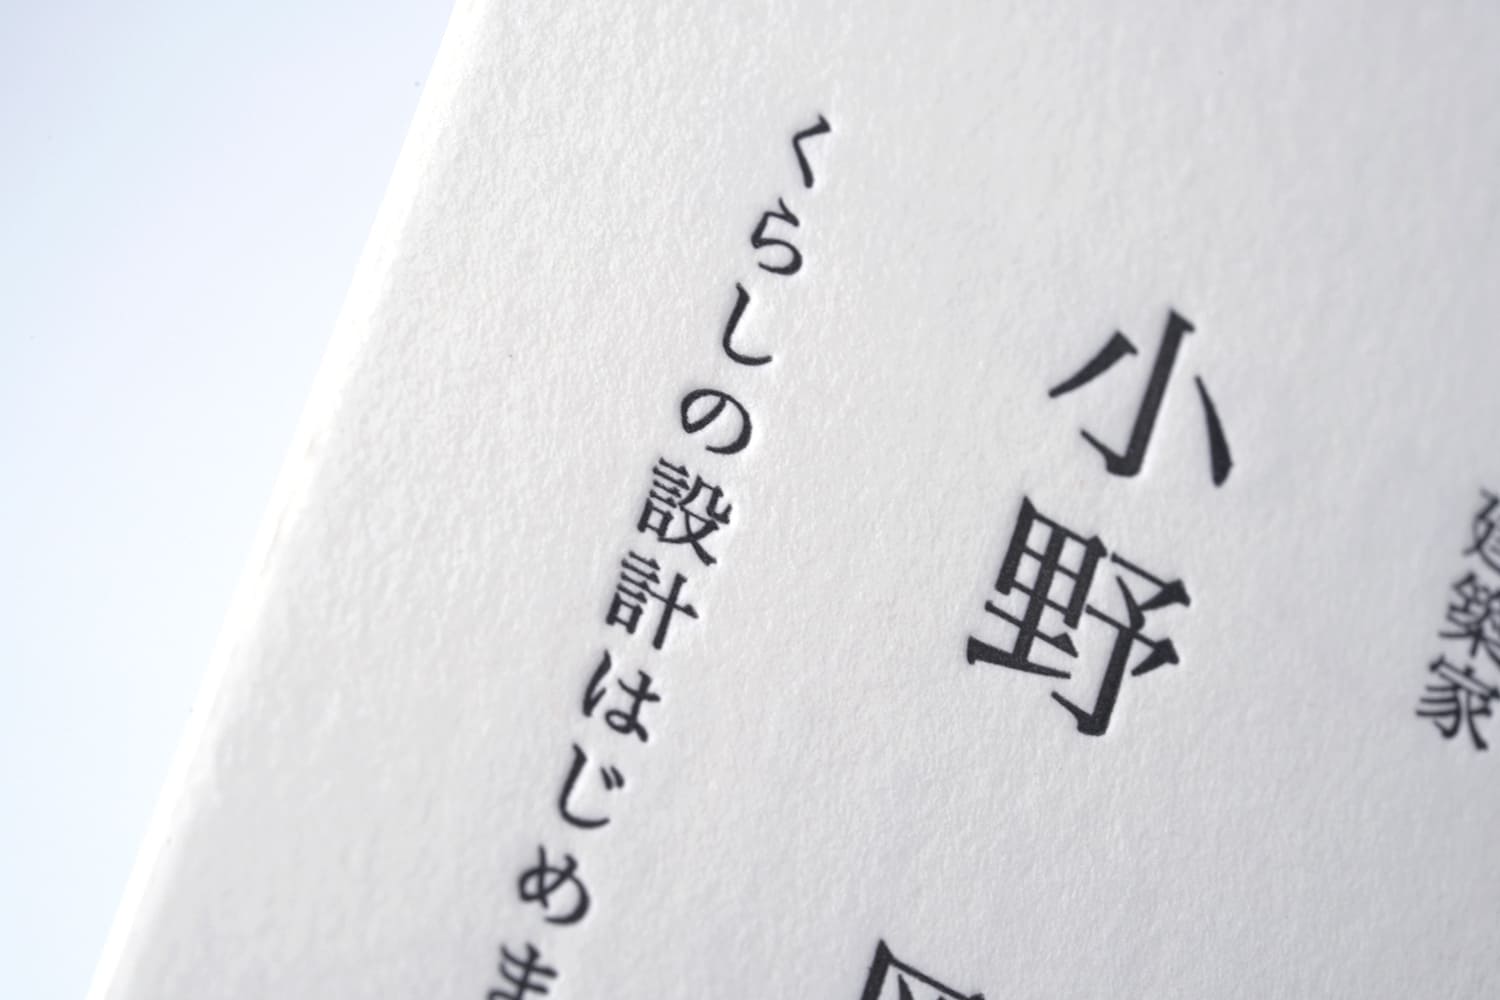 建築家
小野
くらしの設計はじめま